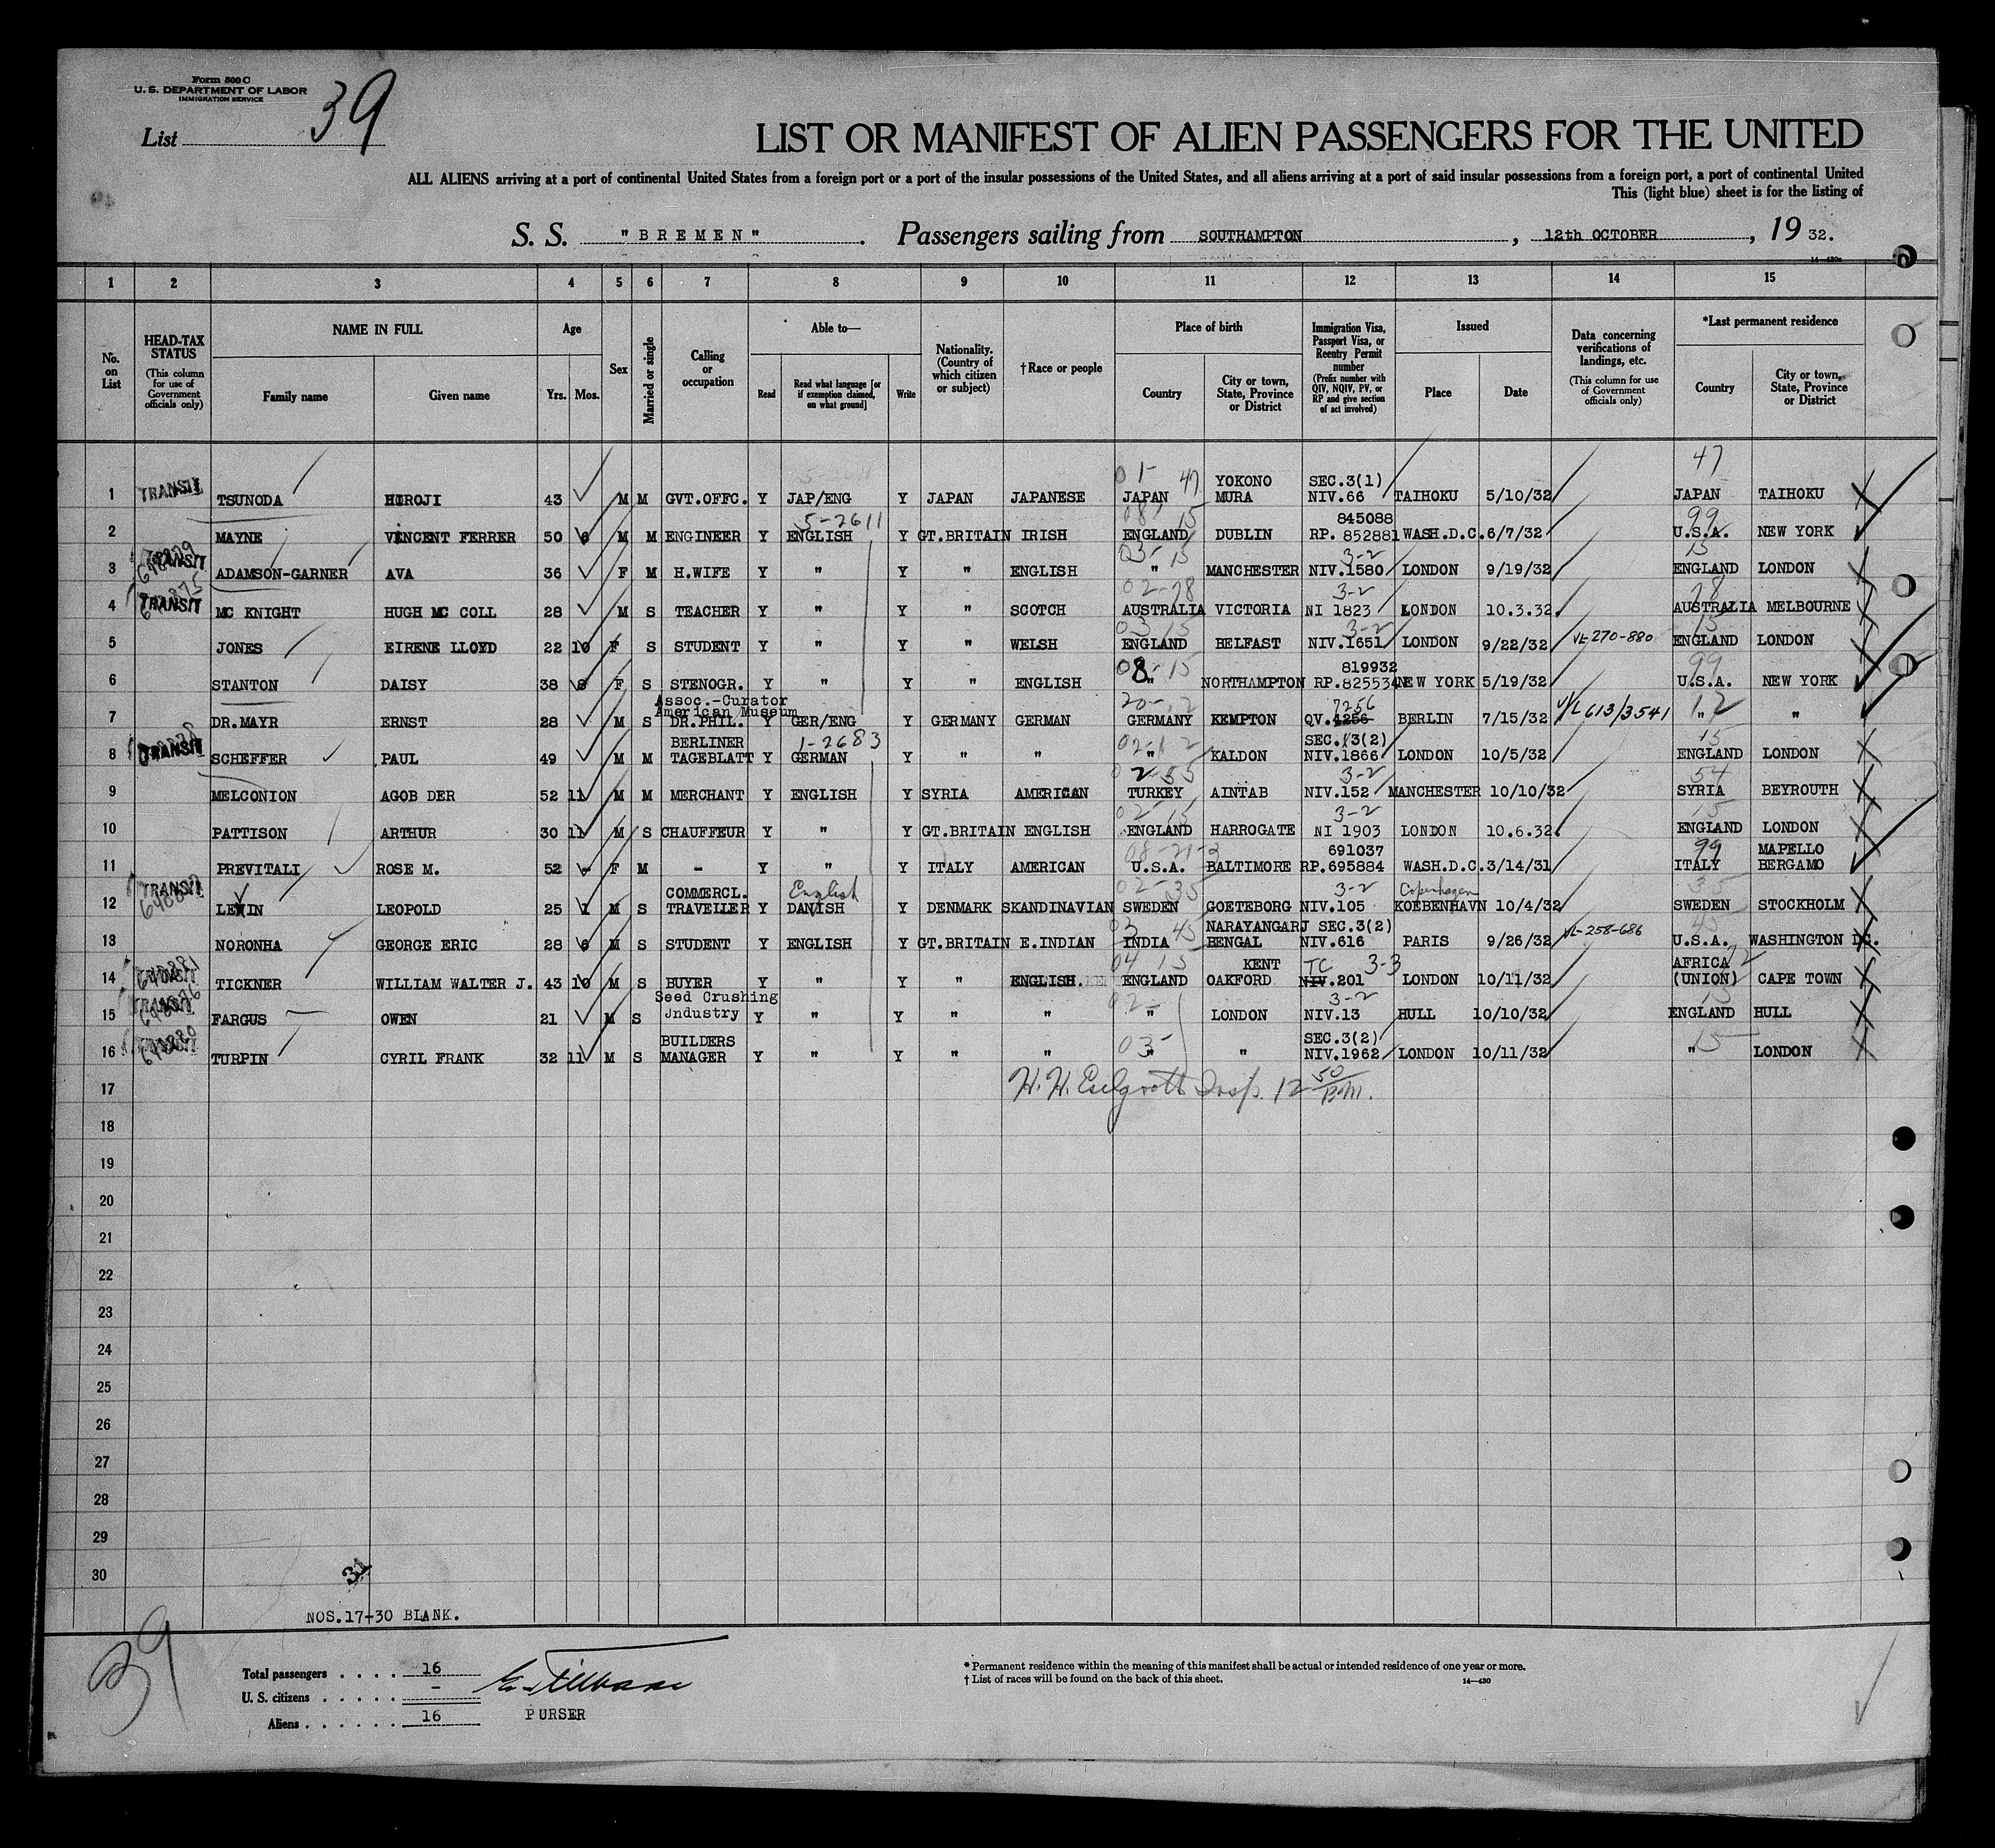 Form 500 C
U. S. DEPARTMENT OF LABOR
IMMIGRATION SERVICE
List 39
LIST OR MANIFEST OF ALIEN PASSENGERS FOR THE UNITED
ALL ALIENS arriving at a port of continental United States from a foreign port or a port of the insular possessions of the United States, and all aliens arriving at a port of said insular possessions from a foreign port, a port of continental United
This (light blue) sheet is for the listing of
S. S. "BREMEN". Passengers sailing from SOUTHAMPTON, 12th OCTOBER, 19 32.
14-430a
1 2 3 4 5 6 7 8 9 10 11 12 13 14 15
No. on List
HEAD-TAX STATUS (This column for use of Government officials only)
NAME IN FULL
Family name Given name
Age
Yrs. Mos.
Sex
Married or single
Calling or occupation
Able to—
Read Read what language [or if exemption claimed, on what ground] Write
Nationality. (Country of which citizen or subject)
†Race or people
Place of birth
Country City or town, State, Province or District
Immigration Visa, Passport Visa, or Reentry Permit number (Prefix number with QIV, NQIV, PV, or RP and give section of act involved)
Issued
Place Date
Data concerning verifications of landings, etc. (This column for use of Government officials only)
*Last permanent residence
Country City or town, State, Province or District
01- 47 YOKONO SEC.3(1) 47
1 TRANSIT TSUNODA HIROJI 43 M M GVT.OFFC. Y JAP/ENG Y JAPAN JAPANESE JAPAN MURA NIV.66 TAIHOKU 5/10/32 JAPAN TAIHOKU
5-2611 08 15 845088 99
2 MAYNE VINCENT FERRER 50 6 M M ENGINEER Y ENGLISH Y GT.BRITAIN IRISH ENGLAND DUBLIN RP. 852881 WASH.D.C. 6/7/32 U.S.A. NEW YORK
03-15 3-2 15
3 TRANSIT ADAMSON-GARNER AVA 36 F M H.WIFE Y " Y " ENGLISH " MANCHESTER NIV.1580 LONDON 9/19/32 ENGLAND LONDON
02-78 3-2 78
4 TRANSIT MC KNIGHT HUGH MC COLL 28 M S TEACHER Y " Y " SCOTCH AUSTRALIA VICTORIA NI 1823 LONDON 10.3.32. AUSTRALIA MELBOURNE
03 15 3-2 15
5 JONES EIRENE LLOYD 22 10 F S STUDENT Y " Y " WELSH ENGLAND BELFAST NIV.1651 LONDON 9/22/32 VL-270-880 ENGLAND LONDON
08-15 819932 99
6 STANTON DAISY 38 8 F S STENOGR. Y " Y " ENGLISH " NORTHAMPTON RP.825534 NEW YORK 5/19/32 U.S.A. NEW YORK
Assoc.-Curator
American Museum 20-12 7256
7 DR.MAYR ERNST 28 M S DR.PHIL. Y GER/ENG Y GERMANY GERMAN GERMANY KEMPTON QV.4256 BERLIN 7/15/32 V/L 613/3541 12 " "
BERLINER 1-2683 02-12 SEC.3(2) 15
8 TRANSIT SCHEFFER PAUL 49 M M TAGEBLATT Y GERMAN Y " " " KALDON NIV.1866 LONDON 10/5/32 ENGLAND LONDON
02-55 3-2 54
9 MELCONION AGOB DER 52 11 M M MERCHANT Y ENGLISH Y SYRIA AMERICAN TURKEY AINTAB NIV.152 MANCHESTER 10/10/32 SYRIA BEYROUTH
02-15 3-2 15
10 PATTISON ARTHUR 30 11 M S CHAUFFEUR Y " Y GT.BRITAIN ENGLISH ENGLAND HARROGATE NI 1903 LONDON 10.6.32. ENGLAND LONDON
08-21-3 691037 99 MAPELLO
11 PREVITALI ROSE M. 52 - F M - Y " Y ITALY AMERICAN U.S.A. BALTIMORE RP.695884 WASH.D.C. 3/14/31 ITALY BERGAMO
COMMERCL. English 02-35 3-2 Copenhagen 35
12 TRANSIT LEXIN LEOPOLD 25 1 M S TRAVELLER Y DANISH Y DENMARK SKANDINAVIAN SWEDEN GOETEBORG NIV.105 KOEBENHAVN 10/4/32 SWEDEN STOCKHOLM
03 45 NARAYANGARJ SEC.3(2) 45
13 NORONHA GEORGE ERIC 28 6 M S STUDENT Y ENGLISH Y GT.BRITAIN E.INDIAN INDIA BENGAL NIV.616 PARIS 9/26/32 VL-258-686 U.S.A. WASHINGTON DC.
04 15 KENT TC 3-3 AFRICA 72
14 TRANSIT TICKNER WILLIAM WALTER J. 43 10 M S BUYER Y " Y " ENGLISH. ENGLAND OAKFORD NIV.201 LONDON 10/11/32 (UNION) CAPE TOWN
Seed Crushing 02- 3-2 15
15 TRANSIT FARGUS OWEN 21 M S Jndustry Y " Y " " " LONDON NIV.13 HULL 10/10/32 ENGLAND HULL
BUILDERS 03- SEC.3(2)
16 TRANSIT TURPIN CYRIL FRANK 32 11 M S MANAGER Y " Y " " " " NIV.1962 LONDON 10/11/32 " 15 LONDON
17 Insp. 12 50 P.M.
18
19
20
21
22
23
24
25
26
27
28
29
30
31
NOS.17-30 BLANK.
39
Total passengers . . . . 16
U. S. citizens . . . . . -
Aliens . . . . . . 16
PURSER
* Permanent residence within the meaning of this manifest shall be actual or intended residence of one year or more.
† List of races will be found on the back of this sheet.
14-430